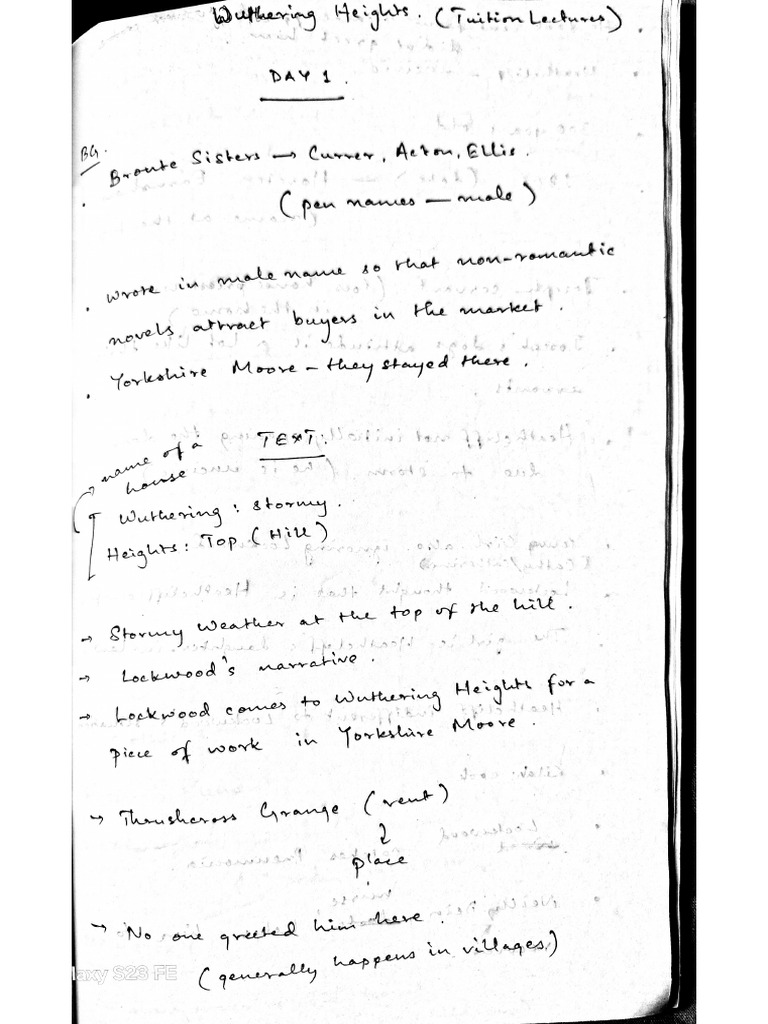 Wuthering Heights. (Tuition Lectures)
DAY 1.
BG.
. Bronte Sisters → Currer, Acton, Ellis.
(pen names — male)
. wrote in male name so that non-romantic
novels attract buyers in the market.
. Yorkshire Moore - they stayed there.
name of a
house
TEXT:
Wuthering: stormy.
Heights: Top (Hill)
→ Stormy weather at the top of the hill.
→ Lockwood's narrative.
→ Lockwood comes to Wuthering Heights for a
piece of work in Yorkshire Moore.
→ Thrushcross Grange (rent)
place
→ No one greeted him here.
(generally happens in villages)
laxy S23 FE